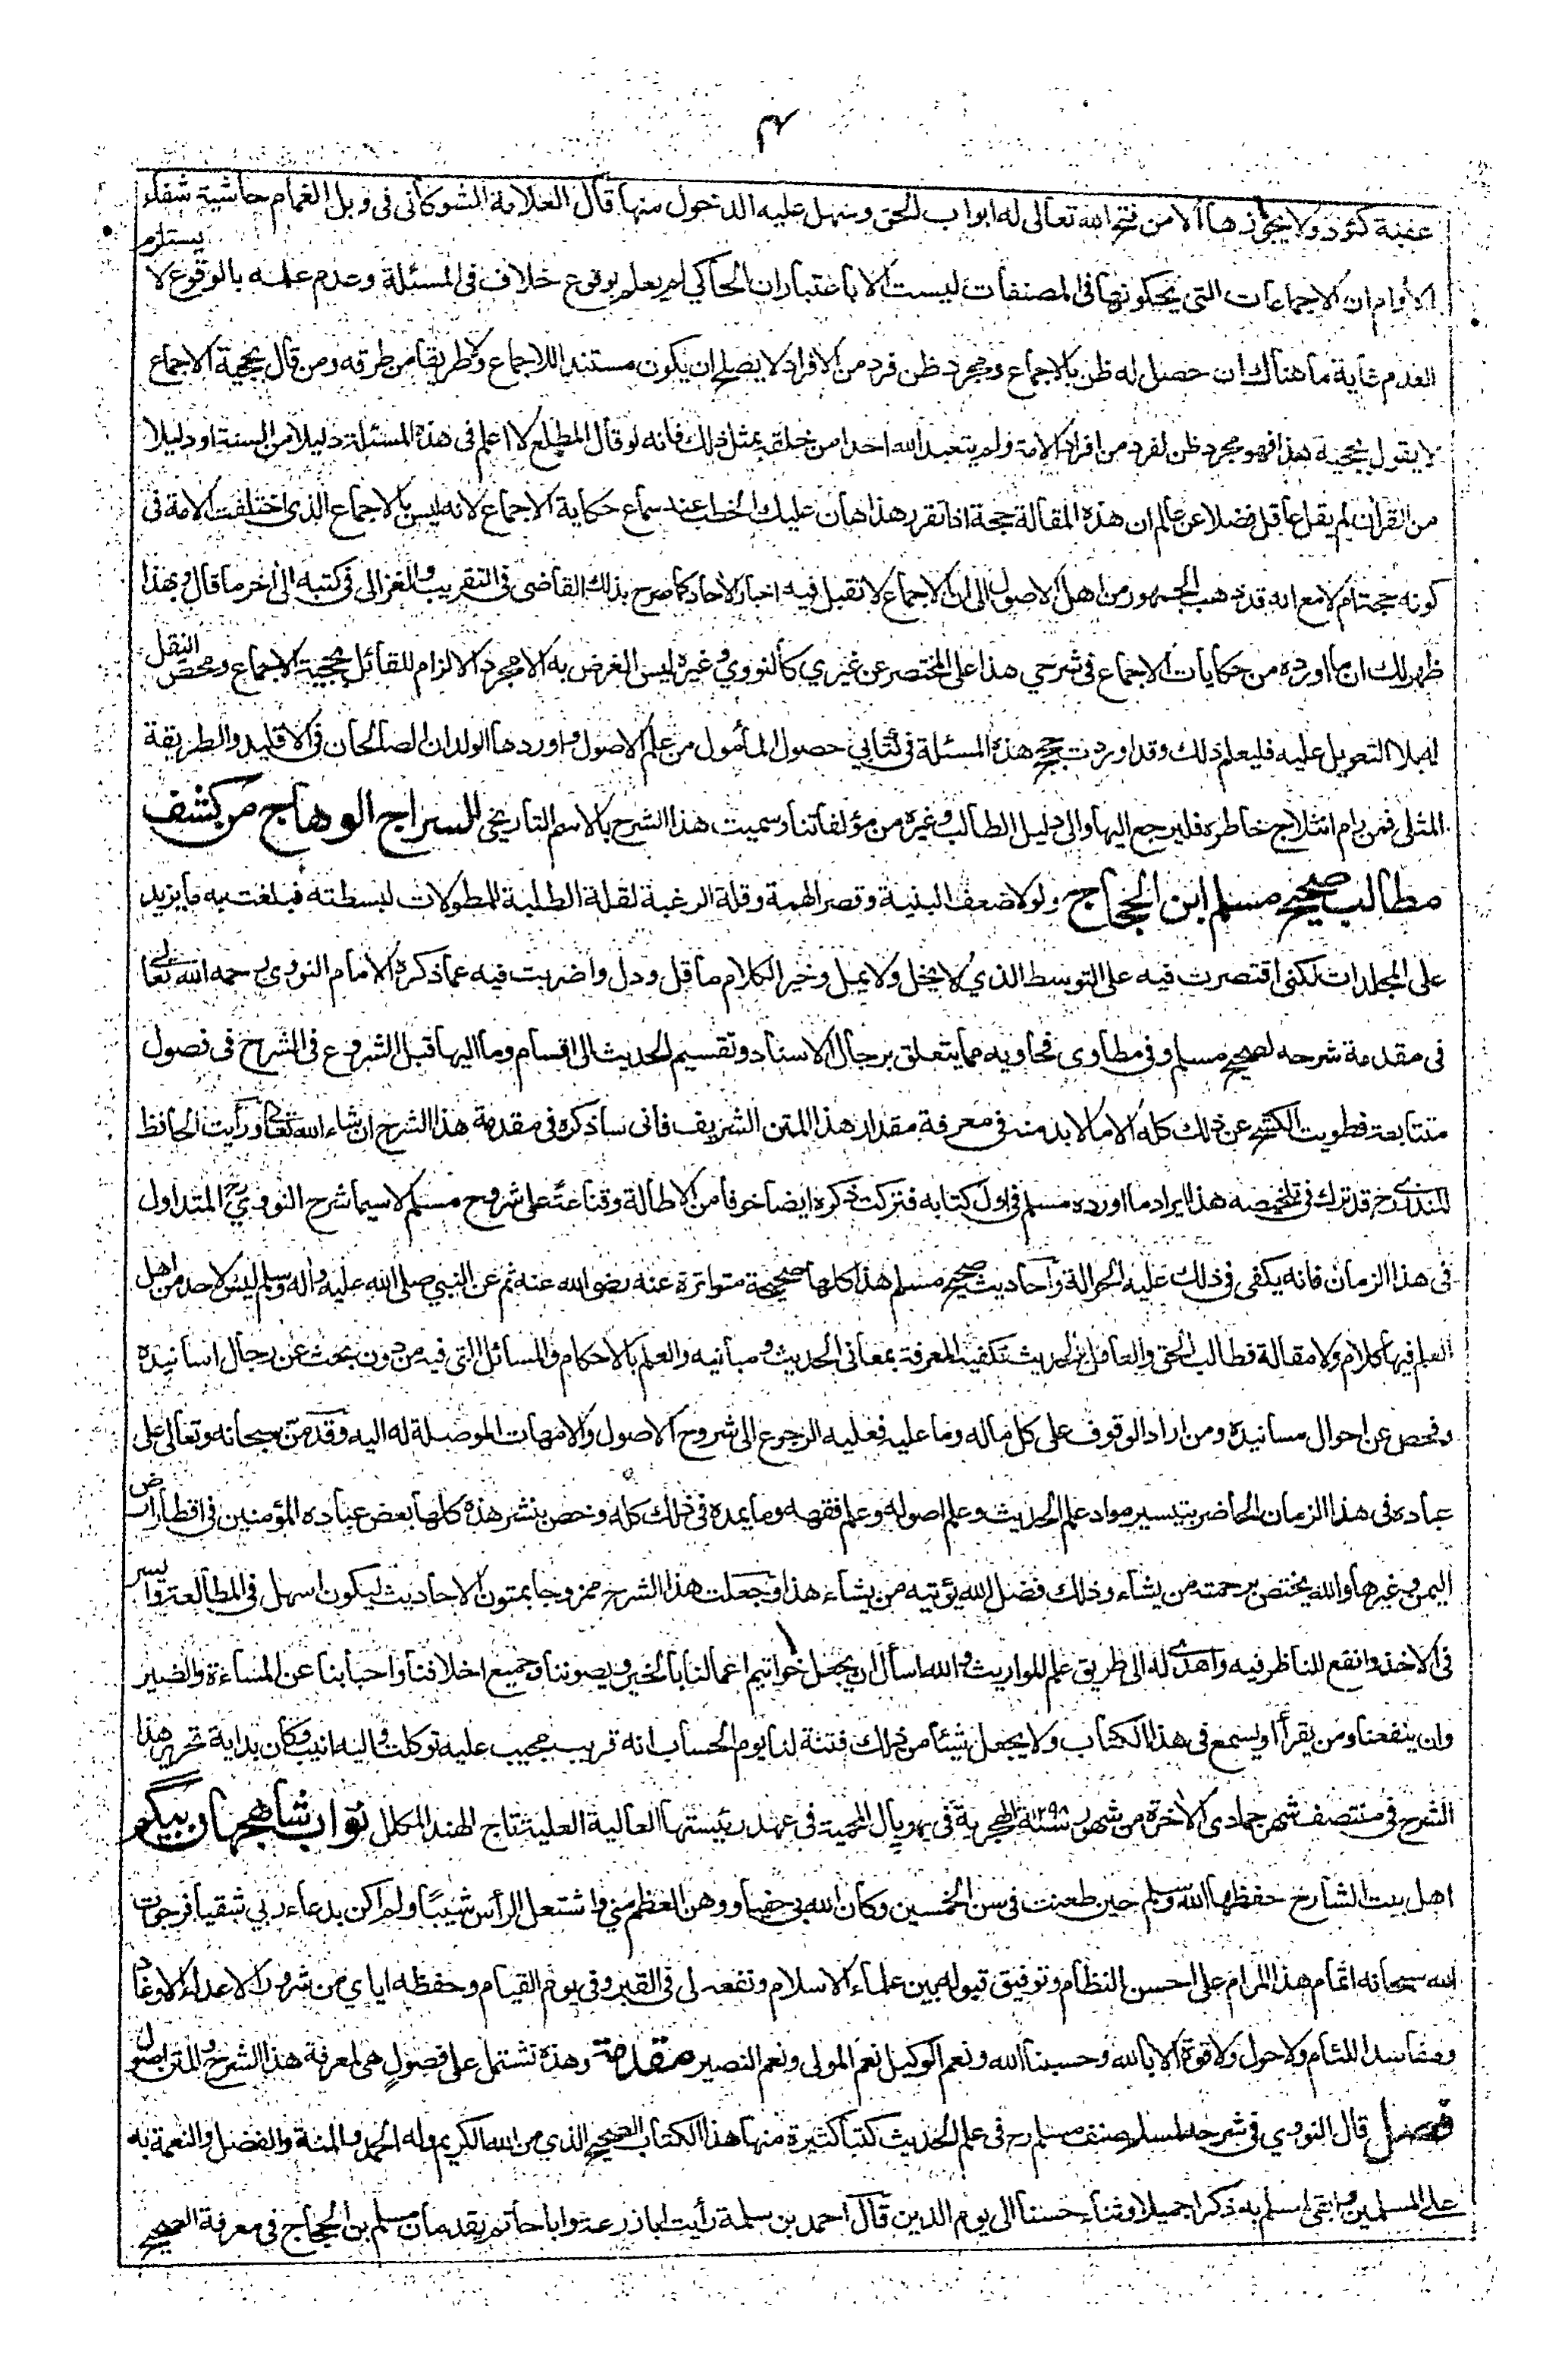 ٤
عقبة كئود ولا يجوزها الا من فتح الله تعالى له ابواب الحق وسهل عليه الدخول منها قال العلامة الشوكاني في وبل الغمام حاشية شفاء
الأوام ان الاجماعات التي يحكونها في المصنفات ليست الا باعتبار ان الحاكي لم يعلم بوقوع خلاف في المسئلة وعدم علمه بالوقوع لا يستلزم
العدم غاية ما هناك ان حصل له ظن بالاجماع ومجرد ظن فرد من الافراد لا يصلح ان يكون مستندا للاجماع ولا طريقا من طرقه ومن قال بحجية الاجماع
لا يقول بحجية هذا فهو مجرد ظن لفرد من افراد الامة ولم يتعبد الله احدا من خلقه بمثل ذلك فانه لو قال المطلع لا اعلم في هذه المسئلة دليلا من السنة او دليلا
من القرآن لم يقل عاقل فضلا عن عالم ان هذه المقالة حجة اذا تقرر هذا هان عليك الخطب عند سماع حكاية الاجماع لانه ليس بالاجماع الذي اختلفت الامة في
كونه حجة ام لا مع انه قد ذهب الجمهور من اهل الاصول الى ان الاجماع لا تقبل فيه اخبار الآحاد كما صرح بذلك القاضي في التقريب والغزالي في كتبه الى آخر ما قال وبهذا
ظهر لك ان ما اورده من حكايات الاجماع في شرحي هذا على المختصر عن غيري كالنووي وغيره ليس الغرض به الا مجرد الالزام للقائل بحجية الاجماع ومحض النقل
له بلا التعويل عليه فليعلم ذلك وقد اوردت حجج هذه المسئلة في كتابي حصول المأمول من علم الاصول واوردها الولدان الصالحان في الاقليد والطريقة
المثلى فمن رام انثلاج خاطره فليرجع اليها والى دليل الطالب وغيره من مؤلفاتنا وسميت هذا الشرح بالاسم التاريخي السراج الوهاج من كشف
مطالب صحيح مسلم ابن الحجاج ولولا ضعف البنية وقصر الهمة وقلة الرغبة لقلة الطلبة للمطولات لبسطته فبلغت به ما يزيد
على المجلدات لكني اقتصرت فيه على التوسط الذي لا يخل ولا يمل وخير الكلام ما قل ودل واضربت فيه عما ذكره الامام النووي رحمه الله تعالى
في مقدمة شرحه لصحيح مسلم وفي مطاوى فحاويه مما يتعلق برجال الاسناد وتقسيم الحديث الى اقسام وما اليها قبل الشروع في الشرح في فصول
متتابعة فطويت الكشح عن ذلك كله الا ما لا بد منه في معرفة مقدار هذا المتن الشريف فاني ساذكره في مقدمة هذا الشرح ان شاء الله تعالى ورأيت الحافظ
المنذري رح قد ترك في تلخيصه هذا ايراد ما اورده مسلم في اول كتابه فتركت ذكره ايضا خوفا من الاطالة وقناعة على شروح مسلم لاسيما شرح النووي رح المتداول
في هذا الزمان فانه يكفى في ذلك عليه الحوالة واحاديث صحيح مسلم هذا كلها صحيحة متواترة عنه رضي الله عنه ثم عن النبي صلى الله عليه وآله وسلم ليس لاحد من اهل
العلم فيها كلام ولا مقالة فطالب الحق والعامل بالحديث تكفيه المعرفة بمعاني الحديث ومبانيه والعلم بالاحكام والمسائل التي فيه من دون بحث عن رجال اسانيده
وفحص عن احوال مسانيده ومن اراد الوقوف على كل ماله وما عليه فعليه الرجوع الى شروح الاصول والامهات الموصلة له اليه وقد من سبحانه وتعالى على
عباده في هذا الزمان الحاضر بتيسير مواد علم الحديث وعلم اصوله وعلم فقهه وما يمده في ذلك كله وخص بنشر هذه كلها بعض عباده المؤمنين في اقطار ارض
اليمن وغيرها والله يختص برحمته من يشاء وذلك فضل الله يؤتيه من يشاء هذا وجعلت هذا الشرح ممزوجا بمتون الاحاديث ليكون اسهل في المطالعة وايسر
في الاخذ وانفع للناظر فيه واهدى له الى طريق علم المواريث والله اسأل ان يجعل خواتيم اعمالنا بالخير ويصوننا وجميع اخلافنا واحبابنا عن المساءة والضير
وان ينفعنا ومن يقرأ او يسمع في هذا الكتاب ولا يجعل شيئا من ذلك فتنة لنا يوم الحساب انه قريب مجيب عليه توكلت واليه انيب وكان بداية تحرير هذا
الشرح في منتصف شهر جمادى الآخرة من شهور سنة ١٢٩٨ الهجرية في بهوپال المحمية في عهد رئيستها العالية العلية تاج الهند المكلل نواب شاهجهان بيگم
اهل بيت الشارح حفظها الله وسلم حين طعنت في سن الخمسين وكان الله بي حفيا ووهن العظم مني واشتعل الرأس شيبا ولم اكن بدعاء ربي شقيا فرجوت
الله سبحانه اتمام هذا المرام على احسن النظام وتوفيق قبوله بين علماء الاسلام ونفعه لي في القبر وفي يوم القيام وحفظه اياي من شرور الاعداء الاوغاد
ومفاسد اللئام ولا حول ولا قوة الا بالله وحسبنا الله ونعم الوكيل نعم المولى ونعم النصير مقدمة وهذه تشتمل على فصول هي لمعرفة هذا الشرح والمتن اصول
فصل قال النووي في شرحه لمسلم صنف مسلم رح في علم الحديث كتبا كثيرة منها هذا الكتاب الصحيح الذي من الله الكريم وله الحمد والمنة والفضل والنعمة به
على المسلمين وابقى لمسلم به ذكرا جميلا وثناء حسنا الى يوم الدين قال احمد بن سلمة رأيت ابا زرعة وابا حاتم يقدمان مسلم بن الحجاج في معرفة الصحيح